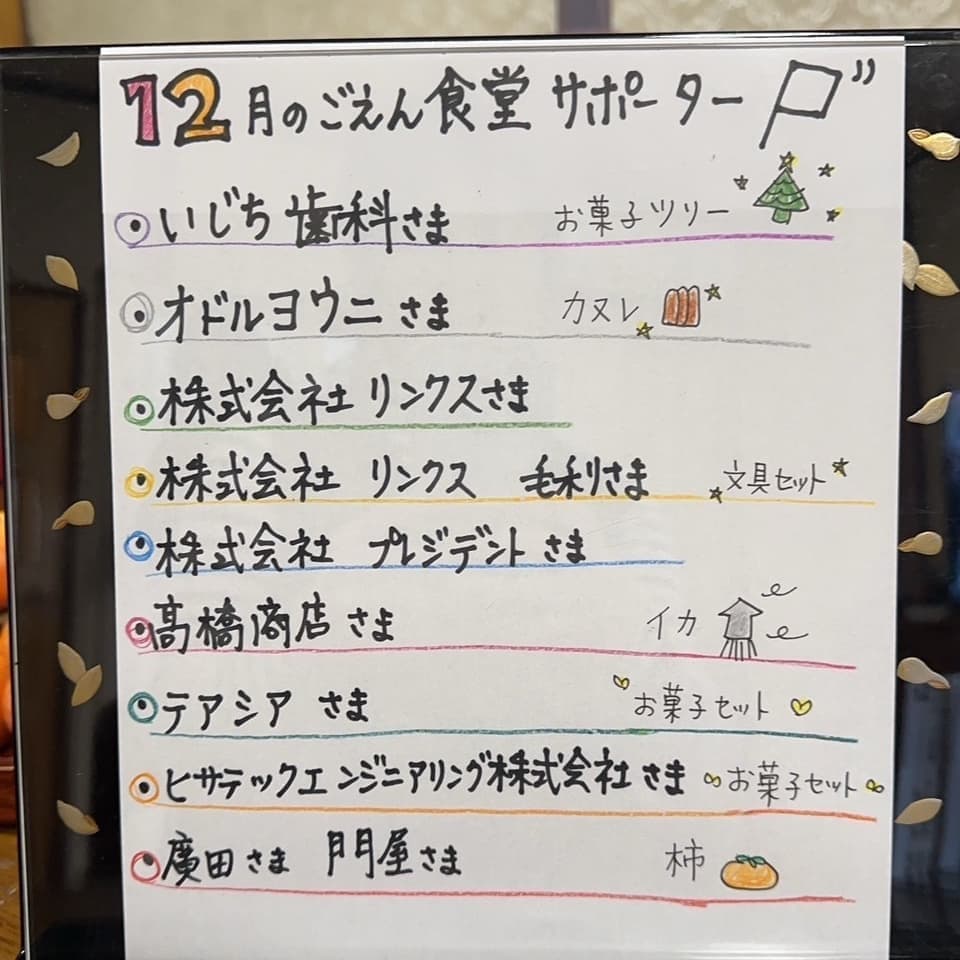 12月のごえん食堂 サポーター
いじち歯科さま お菓子ツリー
オドルヨウニさま カヌレ
株式会社 リンクスさま
株式会社 リンクス 毛利さま 文具セット
株式会社 プレジデントさま
髙橋商店さま イカ
テアシア さま お菓子セット
ヒサテックエンジニアリング株式会社さま お菓子セット
廣田さま 門屋さま 柿